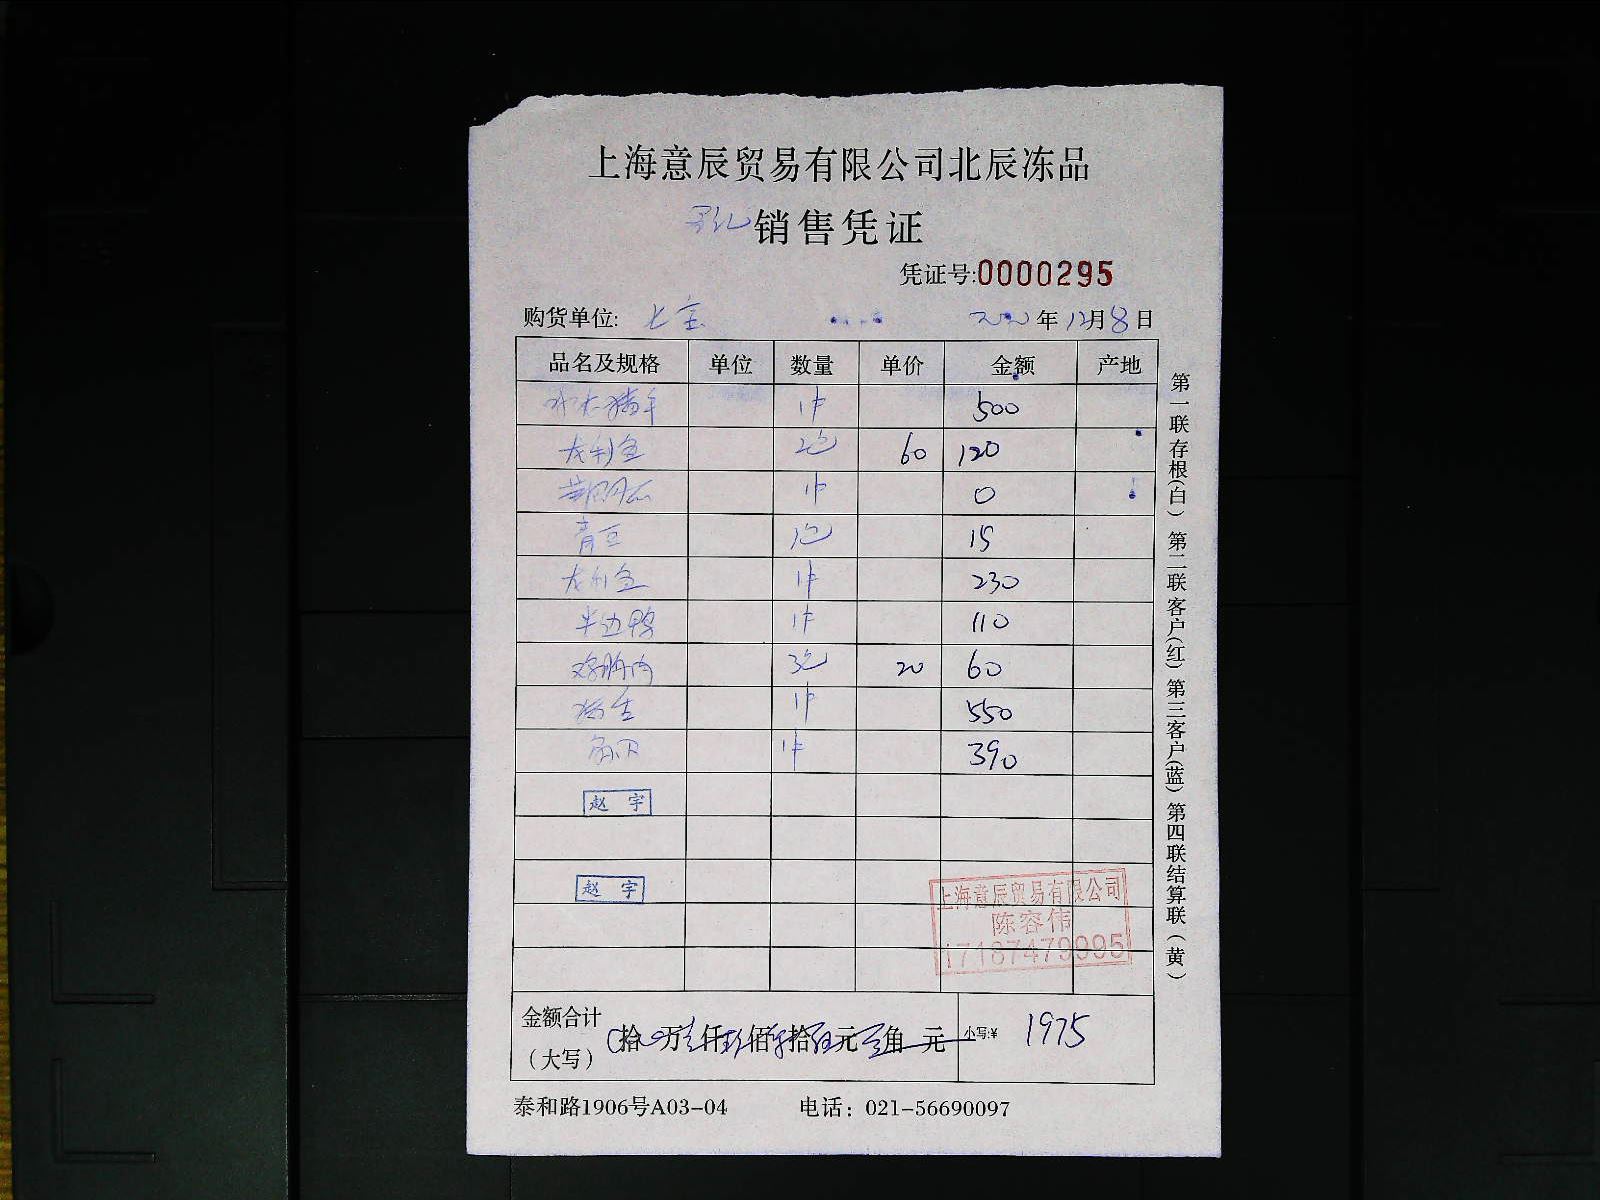 上海意辰贸易有限公司北辰冻品
销售凭证
凭证号:0000295
购货单位: 七宝 2020年12月8日
品名及规格 单位 数量 单价 金额 产地
1件 500
龙利鱼 2包 60 120
1件 0
青豆 1包 15
龙利鱼 1件 230
半边鸭 1件 110
鸡胸肉 3包 20 60
1件 550
1件 390
赵宇
赵宇
上海意辰贸易有限公司
陈容伟
17187479995
金额合计
（大写） 拾 万 仟 佰 拾 元 角 元 小写:¥ 1975
泰和路1906号A03-04 电话：021-56690097
第一联存根(白) 第二联客户(红) 第三客户(蓝) 第四联结算联(黄)